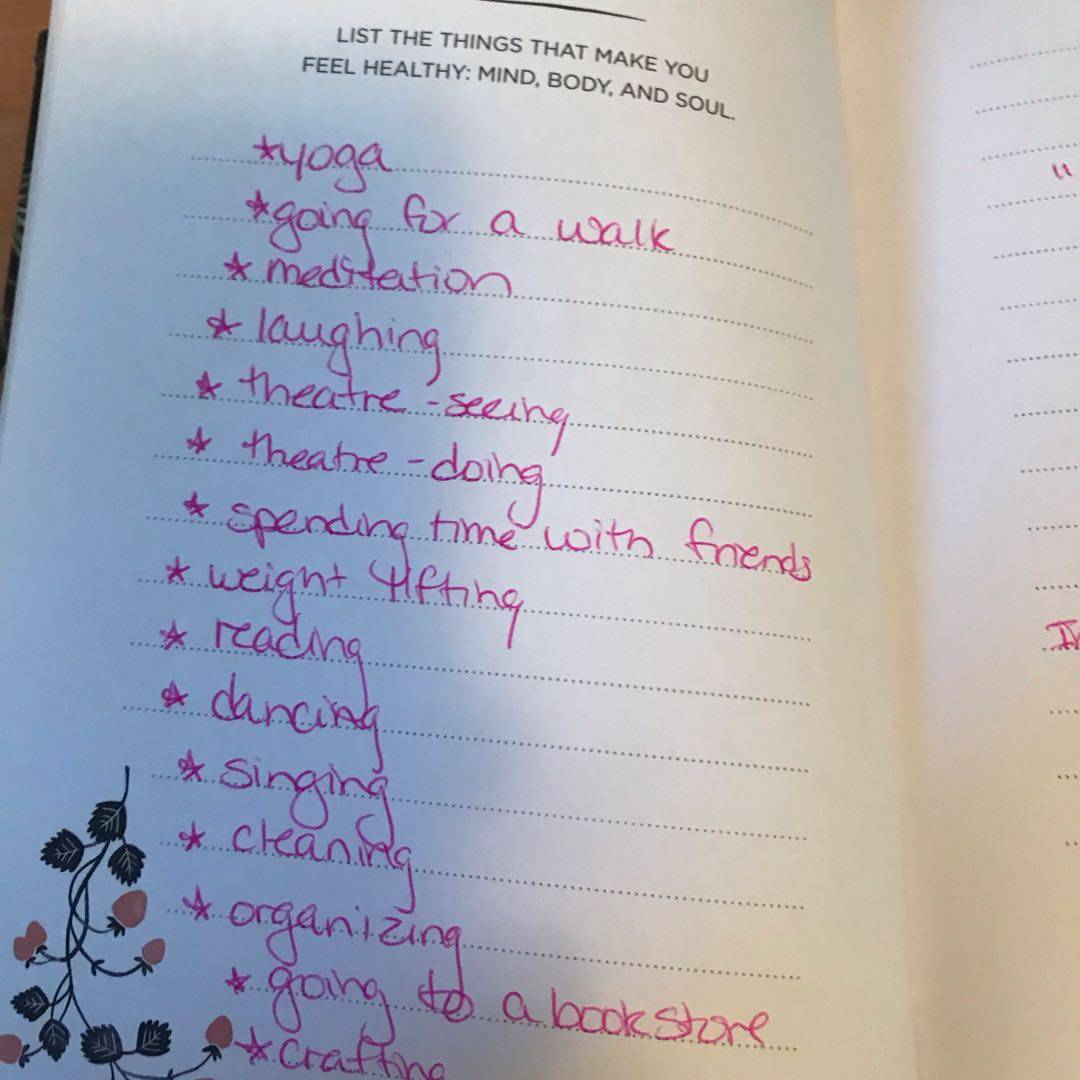 LIST THE THINGS THAT MAKE YOU
FEEL HEALTHY: MIND, BODY, AND SOUL.
*yoga
*going for a walk
* meditation
* laughing
* theatre - seeing
* theatre - doing
* spending time with friends
* weight lifting
* reading
* dancing
* singing
* cleaning
* organizing
* going to a bookstore
* crafting